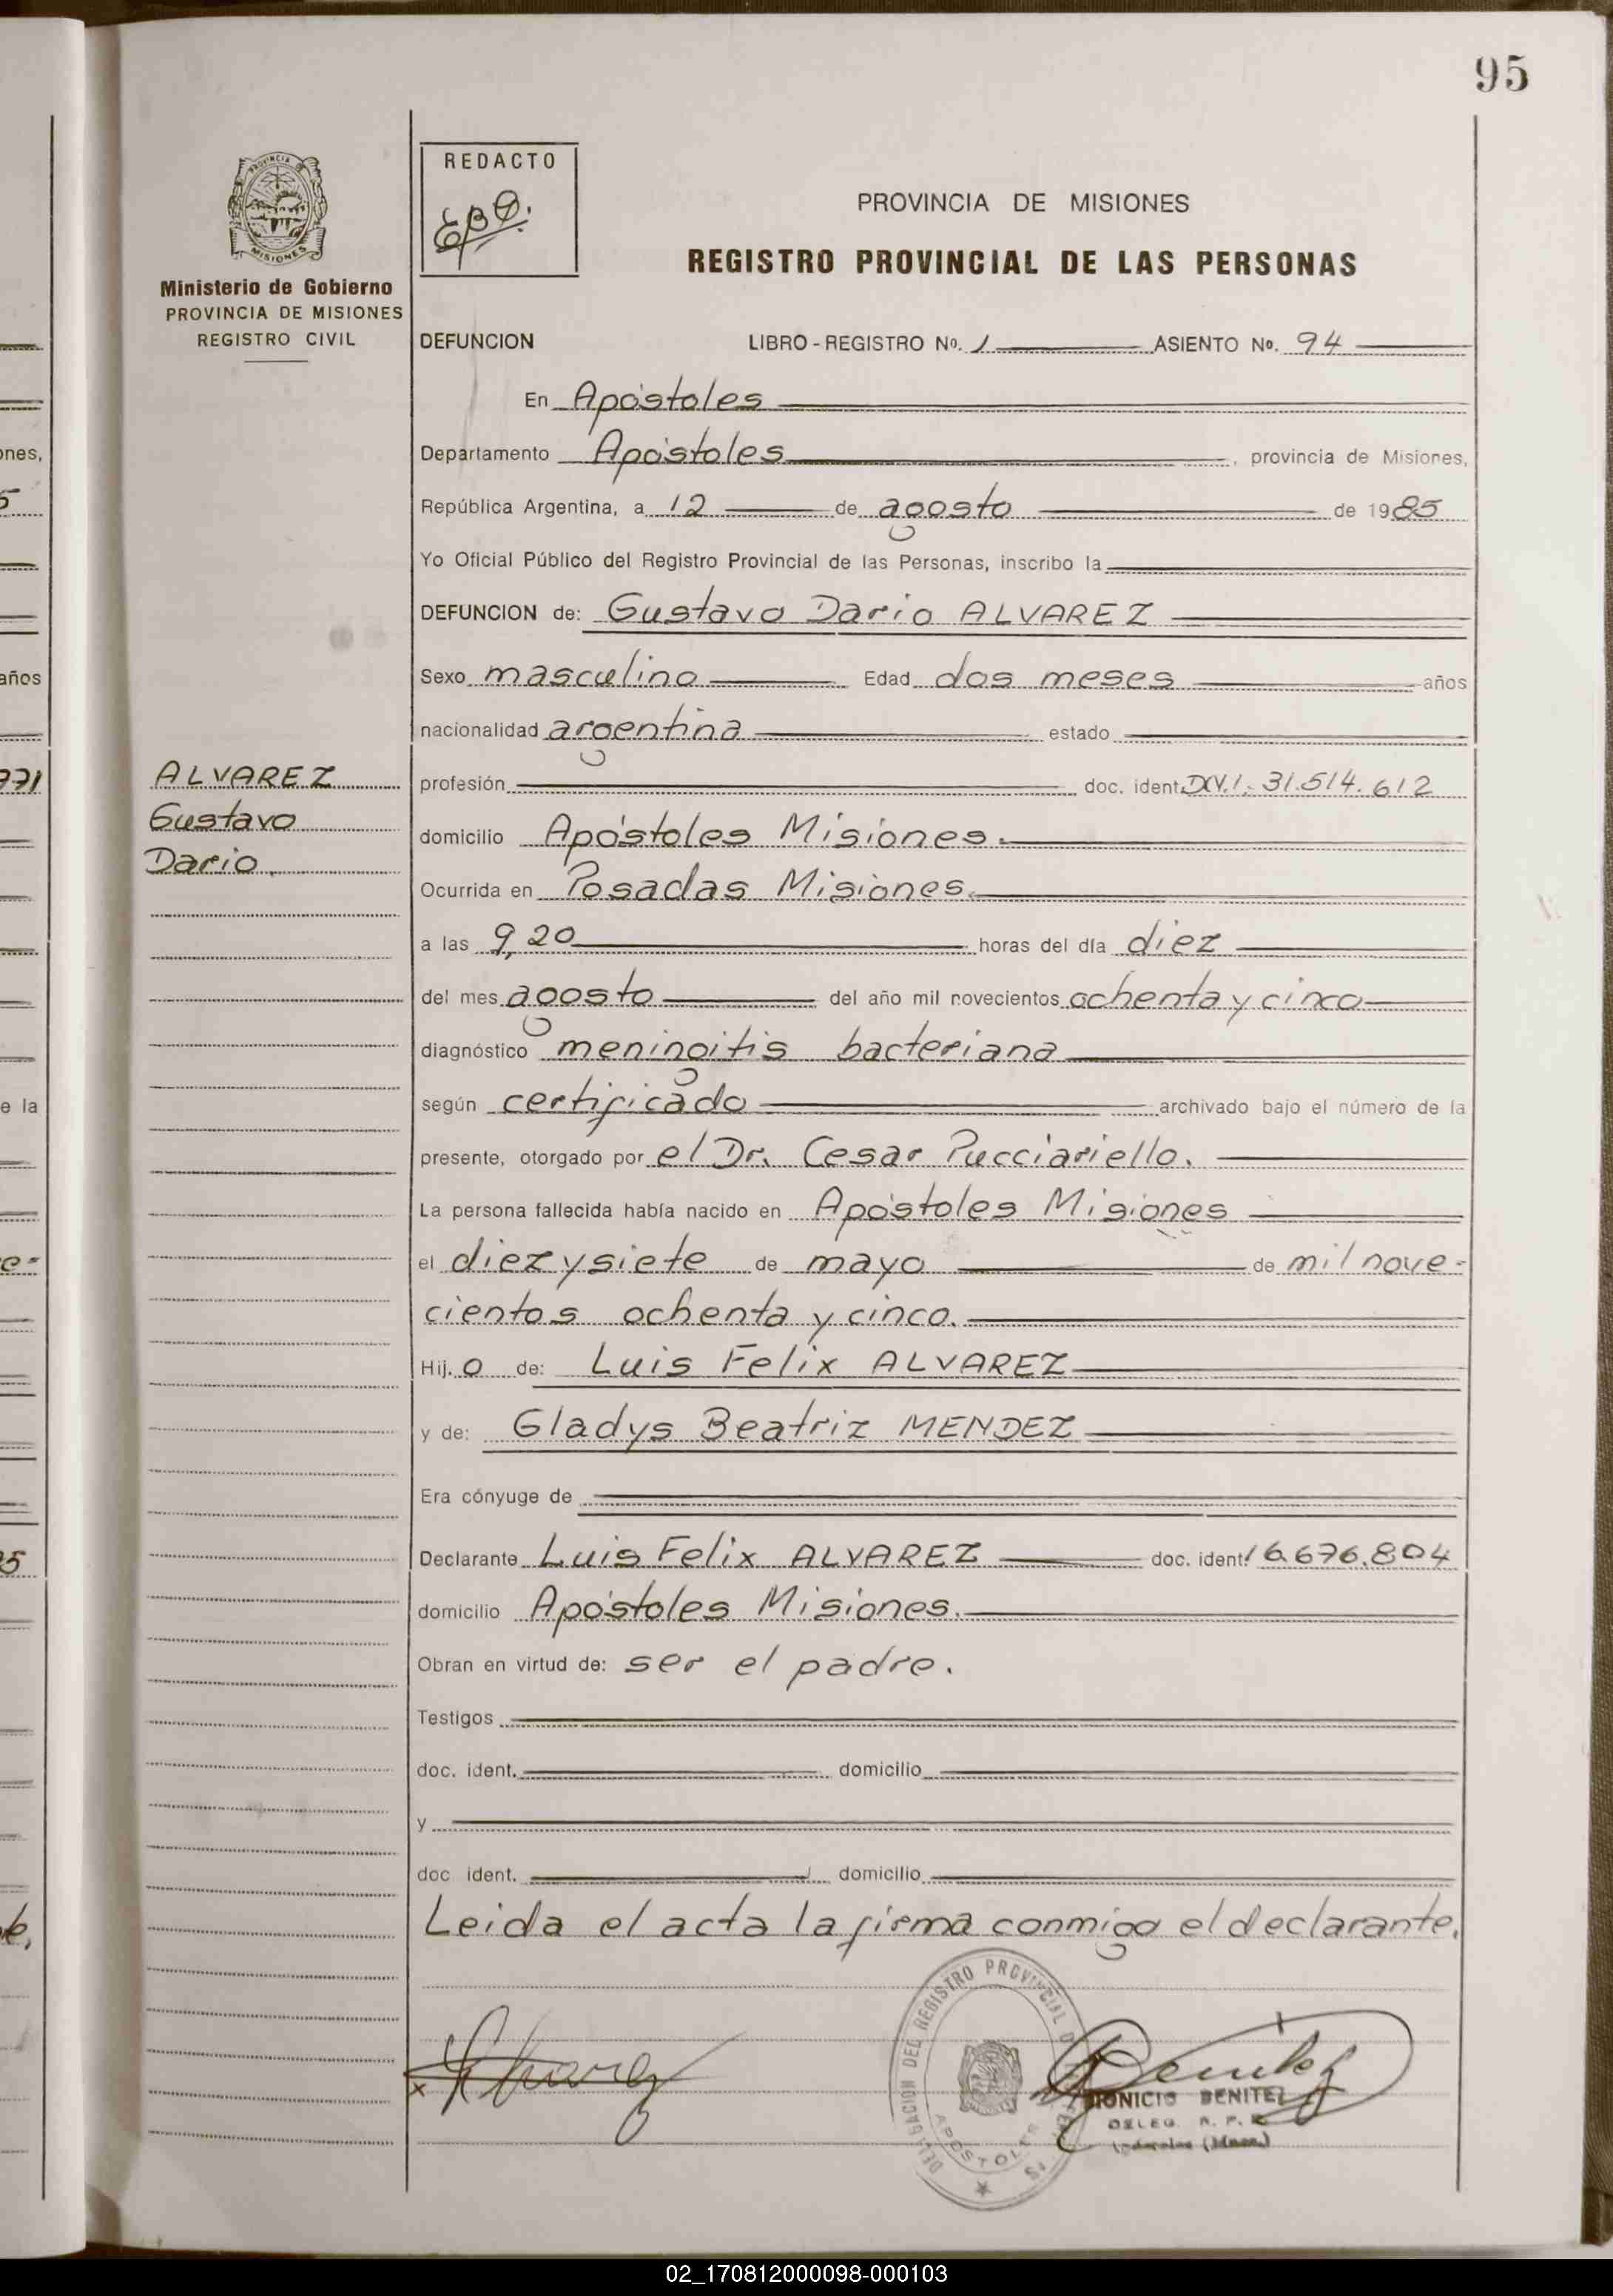 95
REDACTO
PROVINCIA DE MISIONES
REGISTRO PROVINCIAL DE LAS PERSONAS
PROVINCIA DE
MISIONES
Ministerio de Gobierno
PROVINCIA DE MISIONES
REGISTRO CIVIL
DEFUNCION LIBRO - REGISTRO Nº. 1 ASIENTO Nº. 94
En Apóstoles
Departamento Apóstoles, provincia de Misiones,
República Argentina, a 12 de agosto de 1985
Yo Oficial Público del Registro Provincial de las Personas, inscribo la
DEFUNCION de: Gustavo Dario ALVAREZ
Sexo masculino Edad dos meses años
nacionalidad argentina estado
ALVAREZ
Gustavo
Dario
profesión doc. ident. 31.514.612
domicilio Apóstoles Misiones.
Ocurrida en Posadas Misiones.
a las 9,20 horas del día diez
del mes agosto del año mil novecientos ochenta y cinco
diagnóstico meningitis bacteriana
según certificado archivado bajo el número de la
presente, otorgado por el Dr. Cesar Pucciariello.
La persona fallecida había nacido en Apóstoles Misiones
el diez y siete de mayo de mil nove-
cientos ochenta y cinco.
Hij. o de: Luis Felix ALVAREZ
y de: Gladys Beatriz MENDEZ
Era cónyuge de
Declarante Luis Felix ALVAREZ doc. ident. 16.676.804
domicilio Apóstoles Misiones.
Obran en virtud de: ser el padre.
Testigos
doc. ident. domicilio
y
doc ident. domicilio
Leida el acta la firma conmigo el declarante.
DELEGACION DEL REGISTRO PROVINCIAL
APOSTOLES
x Alvarez
Benitez
DIONICIO BENITEZ
DELEG. R. P.
02_170812000098-000103